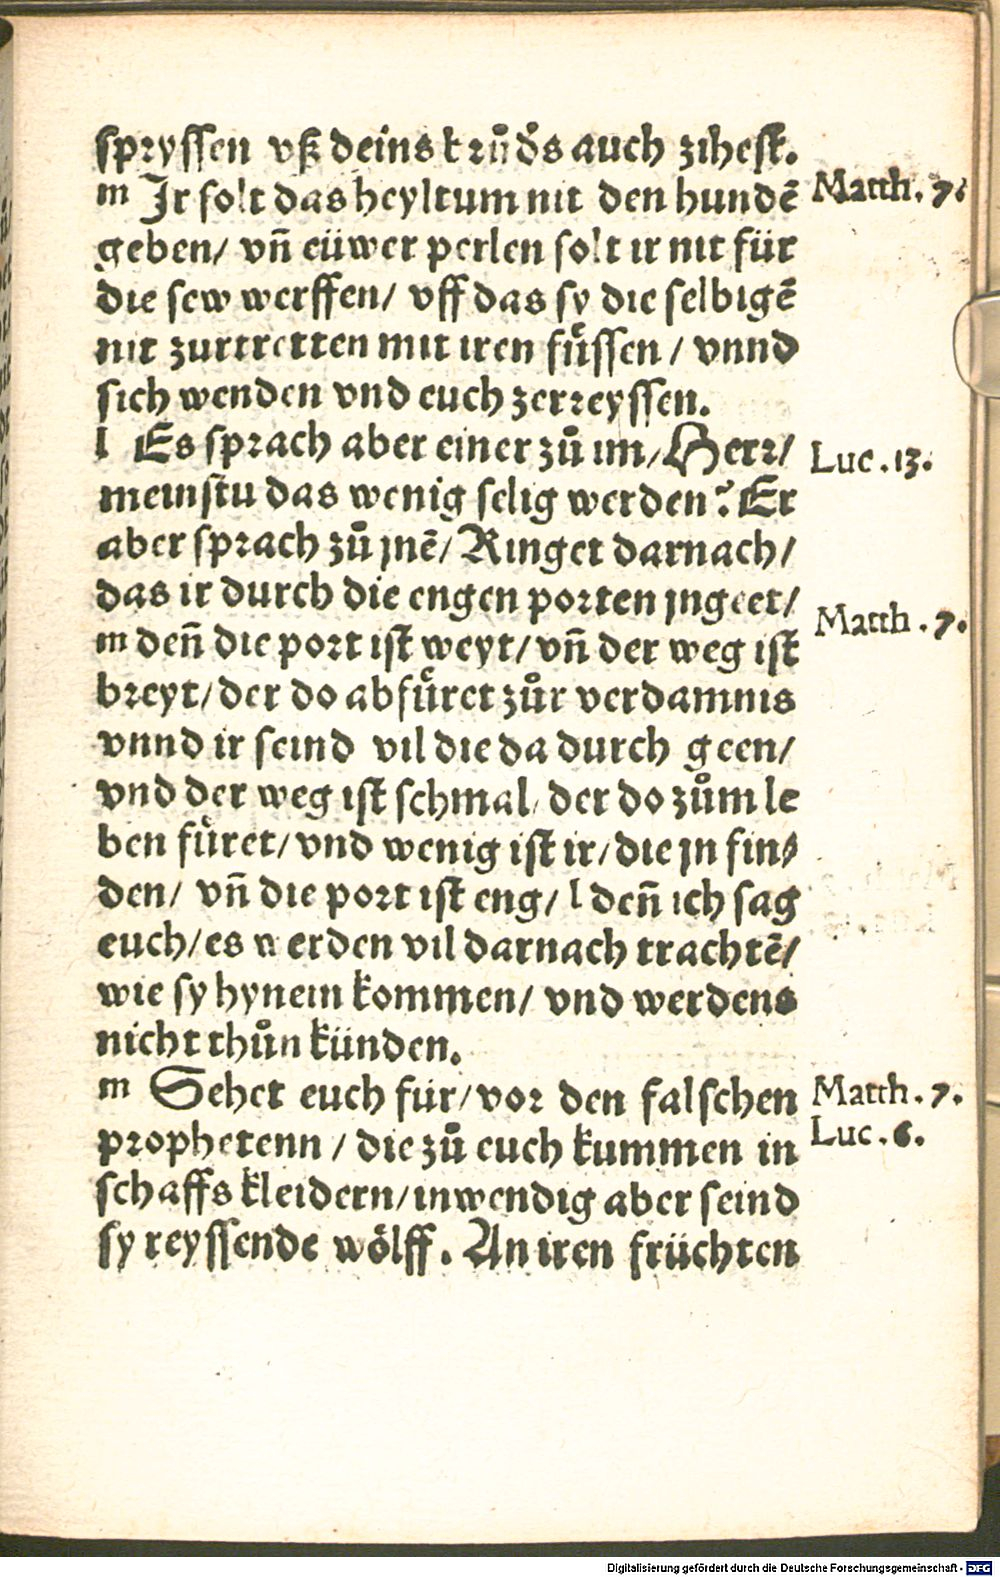 spryssen vß deins brůďs auch zihest.
m Ir solt das heyltum nit den hundẽ
Matth. 7.
geben/ vñ eüwer perlen solt ir nit für
die sew werffen/ vff das sy die selbigẽ
nit zurtretten mit iren fuͤssen / vnnd
sich wenden vnd euch zerreyssen.
l Es sprach aber einer zů im/ Herr/
Luc. 13.
meinstu das wenig selig werden? Er
aber sprach zů jnẽ/ Ringet darnach/
das ir durch die engen porten jngeet/
Matth. 7.
m deñ die port ist weyt/ vñ der weg ist
breyt/ der do abfuͤret zůr verdamnis
vnnd ir seind vil die da durch geen/
vnd der weg ist schmal, der do zům le
ben fuͤret/ vnd wenig ist ir/ die jn fin⸗
den/ vñ die port ist eng/ l deñ ich sag
euch/ es werden vil darnach trachtẽ/
wie sy hynein kommen/ vnd werdens
nicht thůn künden.
m Sehet euch für/ vor den falschen
Matth. 7.
Luc. 6.
prophetenn / die zů euch kummen in
schaffs kleidern/ inwendig aber seind
sy reyssende woͤlff. An iren früchten
Digitalisierung gefördert durch die Deutsche Forschungsgemeinschaft - DFG